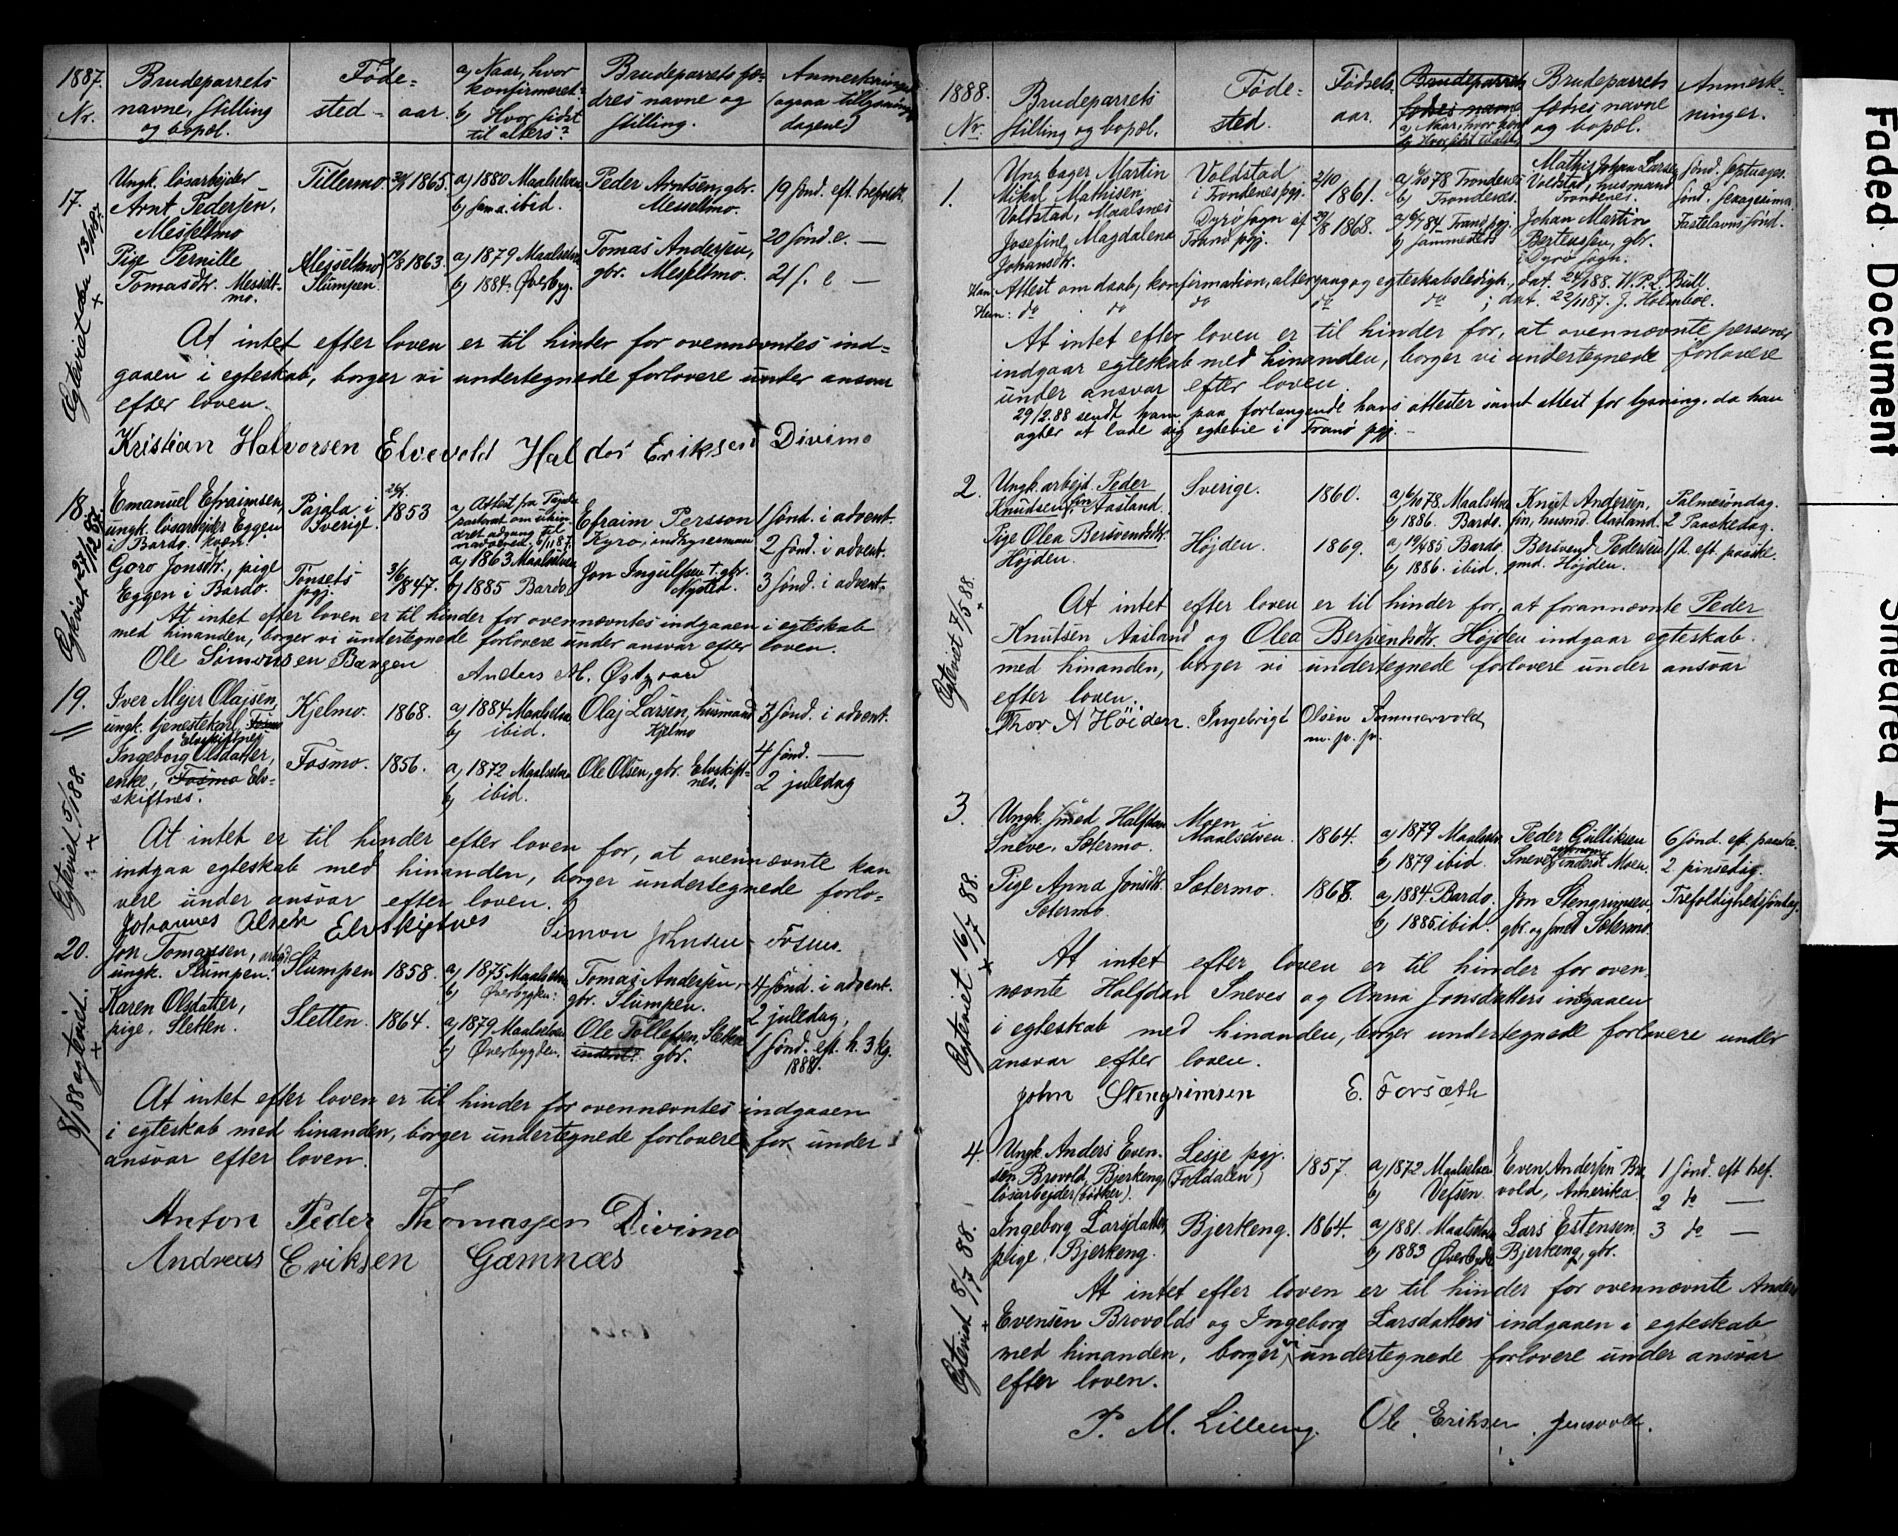 1887.
Nr.
Brudeparrets
navne, stilling
og bopæl.
Føde-
sted - aar.
a) Naar, hvor
konfirmeret?
b) Hvor sidst
til alters?
Brudeparrets fæ-
dres navne og
stilling.
Anmerkninger
(ogsaa tillysnings
dagene)
17.
Ungk. løsarbejder
Arnt Pedersen,
Messeltmo
Tillermo
1865.
a) 1880 Maalselven
b) ibid.
Peder Arntsen, gbr.
Messeltmo.
19 sønd. eft. trefoldh.
Pige Pernille
Tomasdtr. Messelt-
mo.
Messeltmo
Slumpen.
1863.
a) 1879 Maalselven
b) 1884. Øverbyg.
Tomas Andersen,
gbr. Messeltmo.
20 sønd. e. —
21 s. e —
At intet efter loven er til hinder for ovennævntes ind-
gaaen i egteskab, borger vi undertegnede forlovere under ansvar
efter loven.
Kristian Halvorsen Elvevold Haldor Eriksen Divimo
18.
Emanuel Efraimsen,
ungk. løsarbejder Eggen
i Bardo. kvæn.
Pajala i
Sverige.
1853
a) Attest fra Pajala
Efraim Persson
Kyro, indhyserman
1 sønd. i advent.
2 sønd. i advent.
Goro Jonsdtr, pige
Eggen i Bardo.
Tønsets
pgj.
1847.
a) 1863 Maalselven
b) 1885 Bardo
Jon Ingulfsen, gbr.
3 sønd. i advent.
At intet efter loven er til hinder for ovennævntes indgaaen i egteskab
med hinanden, borger vi undertegnede forlovere under ansvar efter loven.
Ole Simonsen Bangen
Anders M. Østgaard
19.
Iver Mejer Olajsen,
ungk. tjenestekarl, Fosmo
Elvskiftnes
Kjelmo.
1868.
a) 1884 Maalselven
b) ibid.
Olaj Larsen, husmand
Kjelmo
3 sønd. i advent.
Ingeborg Olsdatter,
enke, Fosmo Elv-
skiftnes.
Fosmo.
1856.
a) 1872 Maalselven
b) ibid.
Ole Olsen, gbr. Elvskift-
nes.
4 sønd. —
2 juledag
At intet er til hinder efter loven for, at ovennævnte kan
indgaa egteskab med hinanden, borger undertegnede forlo-
vere under ansvar efter loven.
Johannes Elvskiftnes
Simon Johnsen
Egteviet 5/1 88.
20.
Jon Tomassen,
ungk. Slumpen.
Slumpen
1858.
a) 1875 Maalselven
b) Øverbygden.
Tomas Andersen,
gbr. Slumpen.
4 sønd. i advent.
2 juledag,
Karen Olsdatter,
pige, Sletten.
Sletten.
1864.
a) 1879 Maalselven
b) Øverbygden.
Ole Tollefsen, Sletten
inderst gbr.
1 sønd. eft. h. 3 kg.
1888.
8/1 88 egteviet.
At intet efter loven er til hinder for ovennævntes indgaaen
i egteskab med hinanden, borger undertegnede forlovere for under
ansvar efter loven.
Anton Peder Thomassen Divimo
Andreas Eriksen Gamnæs
1888.
Nr.
Brudeparrets
stilling og bopæl.
Føde-
sted.
Fødsels-
aar.
Brudeparrets
fædres navne
a) Naar, hvor konf.
b) Hvor sidst til alters
Brudeparrets
fædres navne
og bopæl.
Anmerk-
ninger.
1.
Ung. bager Martin
Mikal Mathisen
Voldstad, Maalsnes
Voldstad
i Trondenes pgj.
2/10
1861.
a) 6/10 78 Trondenes
b) Trondenes.
Mathis Johan Larsen
Voldstad, husmand
Trondenes.
Sønd. septuages.
Sønd. sexagesima.
Josefine Magdalena
Johansdtr.
Dyrø sogn af
Tranø pgj.
1868.
84. Tranø pgj.
b) sammesteds
Johan Martin
Berteussen, gbr.
i Dyrø sogn.
Fastelavns sønd.
Han: Attest om daab, konfirmation, altergang og egteskabsledigh., dat. 24/1 88. W.P.L. Bull.
Hun: do do do do ; dat. 22/11 87. J. Holmboe.
At intet efter loven er til hinder for, at ovennævnte personer
indgaar egteskab med hinanden, borger vi undertegnede forlovere
under ansvar efter loven.
29/2.88 sendt ham paa forlangende hans attester samt attest for lysning, da han
agter at lade sig egtevie i Tranø pgj. —
2.
Ungk. arbejd. Peder
Knudsen, fin Aasland.
Sverige.
1860.
a) 6/10 78. Maalselven
b) 1886. Bardo.
Knut Andersen,
fin, husmd. Aasland.
Palmesøndag.
2 Paaskedag.
Pige Olea Bersvendsdtr.
Højden.
Højden.
1869.
a) 19/4 85 Bardo
b) 1886. ibid.
Bersvend Pedersen
gmd. Højden.
1 s. eft. paaske.
Egteviet 7/5 88.
At intet efter loven er til hinder for, at forannævnte Peder
Knutsen Aasland og Olea Bersvendsdtr. Højden indgaar egteskab
med hinanden, borger vi undertegnede forlovere under ansvar
efter loven.
Thor A Höiden. Ingebrigt Olsen Tømmervold
m. p. p.
3.
Ungk. smed Halfdan
Sneve, Sætermo.
Moen i
Maalselven
1864.
a) 1879 Maalselven
b) 1879 ibid.
Peder Gulliksen
Sneve, inderst Moen.
6 sønd. eft. paaske.
2 pinsedag.
Pige Anna Jonsdtr.
Sætermo.
Sætermo.
1868.
a) 1884 Bardo.
b) 1885 ibid.
Jon Stengrimsen,
gbr. og smed Sætermo.
Trefoldighedssøndag.
Egteviet 16/7 88.
At intet efter loven er til hinder for oven
nævnte Halfdan Sneves og Anna Jonsdatters indgaaen
i egteskab med hinanden, borger undertegnede forlovere under
ansvar efter loven.
John Stengrimsen E. Forsæth
4.
Ungk. Anders Even-
sen Brovold, Bjerkeng
løsarbejder (bødker).
Lesje pgj.
(Foldalen)
1857.
a) 1872 Maalselven
b) Vefsen.
Even Andersen Bro-
vold, Amerika.
1 sønd. eft tref.
2 do —
Ingeborg Larsdatter,
pige, Bjerkeng.
Bjerkeng.
1864.
a) 1881. Maalselven
b) 1883 Øverbygd.
Lars Estensen
Bjerkeng, gbr.
3 do —
Egteviet 8/7 88.
At intet efter loven er til hinder for ovennævnte Anders
Evensen Brovolds og Ingeborg Larsdatters indgaaen i egteskab
med hinanden, borger vi undertegnede forlovere under ansvar
efter loven.
P. M. Lilleeng. Ole Eriksen Jensvold.
Faded Document
Smeared Ink